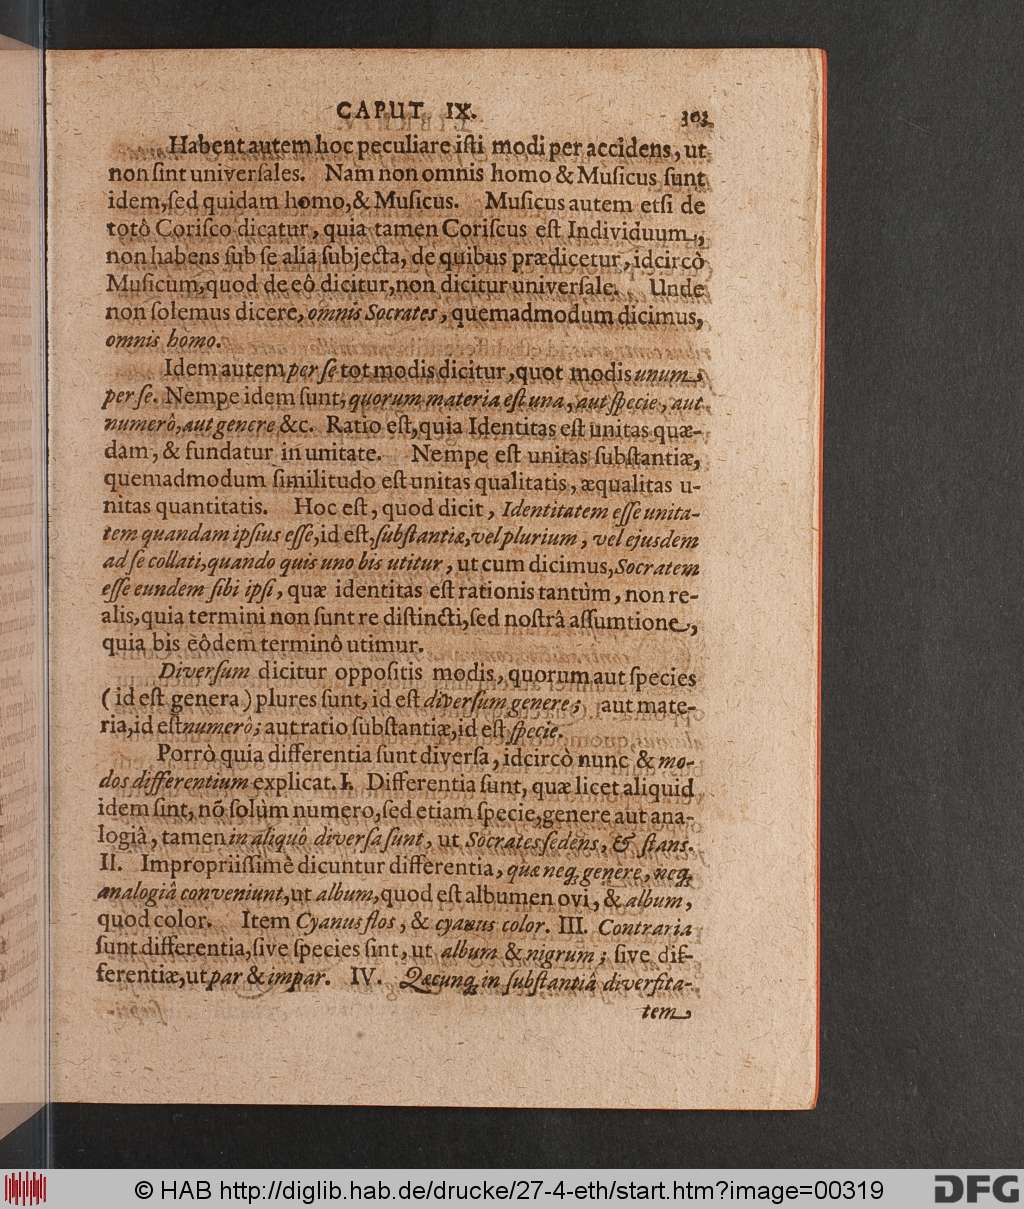 CAPUT IX. 303
Habent autem hoc peculiare iſti modi per accidens, ut
non ſint univerſales. Nam non omnis homo & Muſicus ſunt
idem, ſed quidam homo, & Muſicus. Muſicus autem etſi de
totô Coriſco dicatur, quia tamen Coriſcus eſt Individuum,
non habens ſub ſe alia ſubjecta, de quibus prædicetur, idcircò
Muſicum, quod de eô dicitur, non dicitur univerſale. Unde
non ſolemus dicere, omnis Socrates, quemadmodum dicimus,
omnis homo.
Idem autem per ſe tot modis dicitur, quot modis unum
per ſe. Nempe idem ſunt, quorum materia eſt una, aut ſpecie, aut
numerô, aut genere &c. Ratio eſt, quia Identitas eſt unitas quæ-
dam, & fundatur in unitate. Nempe eſt unitas ſubſtantiæ,
quemadmodum ſimilitudo eſt unitas qualitatis, æqualitas u-
nitas quantitatis. Hoc eſt, quod dicit, Identitatem eſſe unita-
tem quandam ipſius eſſe, id eſt, ſubſtantiæ, vel plurium, vel ejusdem
ad ſe collati, quando quis uno bis utitur, ut cum dicimus, Socratem
eſſe eundem ſibi ipſi, quæ identitas eſt rationis tantùm, non re-
alis, quia termini non ſunt re diſtincti, ſed noſtrâ aſſumtione,
quia bis eôdem terminô utimur.
Diverſum dicitur oppoſitis modis, quorum aut ſpecies
(id eſt genera) plures ſunt, id eſt diverſum genere; aut mate-
ria, id eſt numerô; aut ratio ſubſtantiæ, id eſt ſpecie.
Porrò quia differentia ſunt diverſa, idcircò nunc & mo-
dos differentium explicat. I. Differentia ſunt, quæ licet aliquid
idem ſint, nõ ſolùm numero, ſed etiam ſpecie, genere aut ana-
logiâ, tamen in aliquô diverſa ſunt, ut Socrates ſedens, & ſtans.
II. Impropriiſſimè dicuntur differentia, quæ neq; genere, neq;
analogiâ conveniunt, ut album, quod eſt albumen ovi, & album,
quod color. Item Cyanus flos, & cyanus color. III. Contraria
ſunt differentia, ſive ſpecies ſint, ut album & nigrum; ſive dif-
ferentiæ, ut par & impar. IV. Qæcunq; in ſubſtantiâ diverſita-
tem
© HAB http://diglib.hab.de/drucke/27-4-eth/start.htm?image=00319 DFG